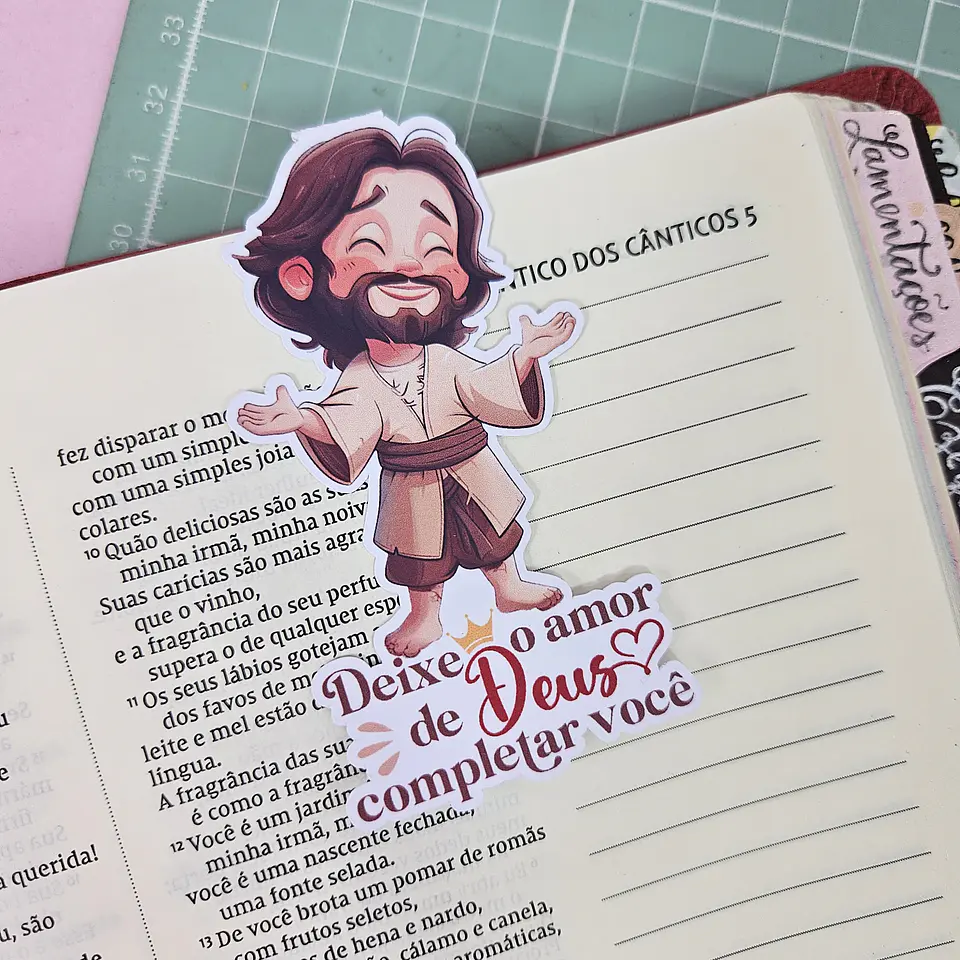 33
32
31
30
NTICO DOS CÂNTICOS 5
Lamentações
fez disparar o
com um simple
com uma simples joia
colares.
10 Quão deliciosas são as suas
minha irmã, minha noiv
Suas carícias são mais agra
que o vinho,
e a fragrância do seu perfu
supera o de qualquer esp
11 Os seus lábios gotejam
dos favos de m
leite e mel estão
língua.
A fragrância das sua
é como a fragrân
12 Você é um jardim
minha irmã, m
você é uma nascente fechada,
uma fonte selada.
13 De você brota um pomar de romãs
com frutos seletos,
de hena e nardo,
cálamo e canela,
aromáticas,
Deixe o amor
de Deus
completar você
a querida!
u, são